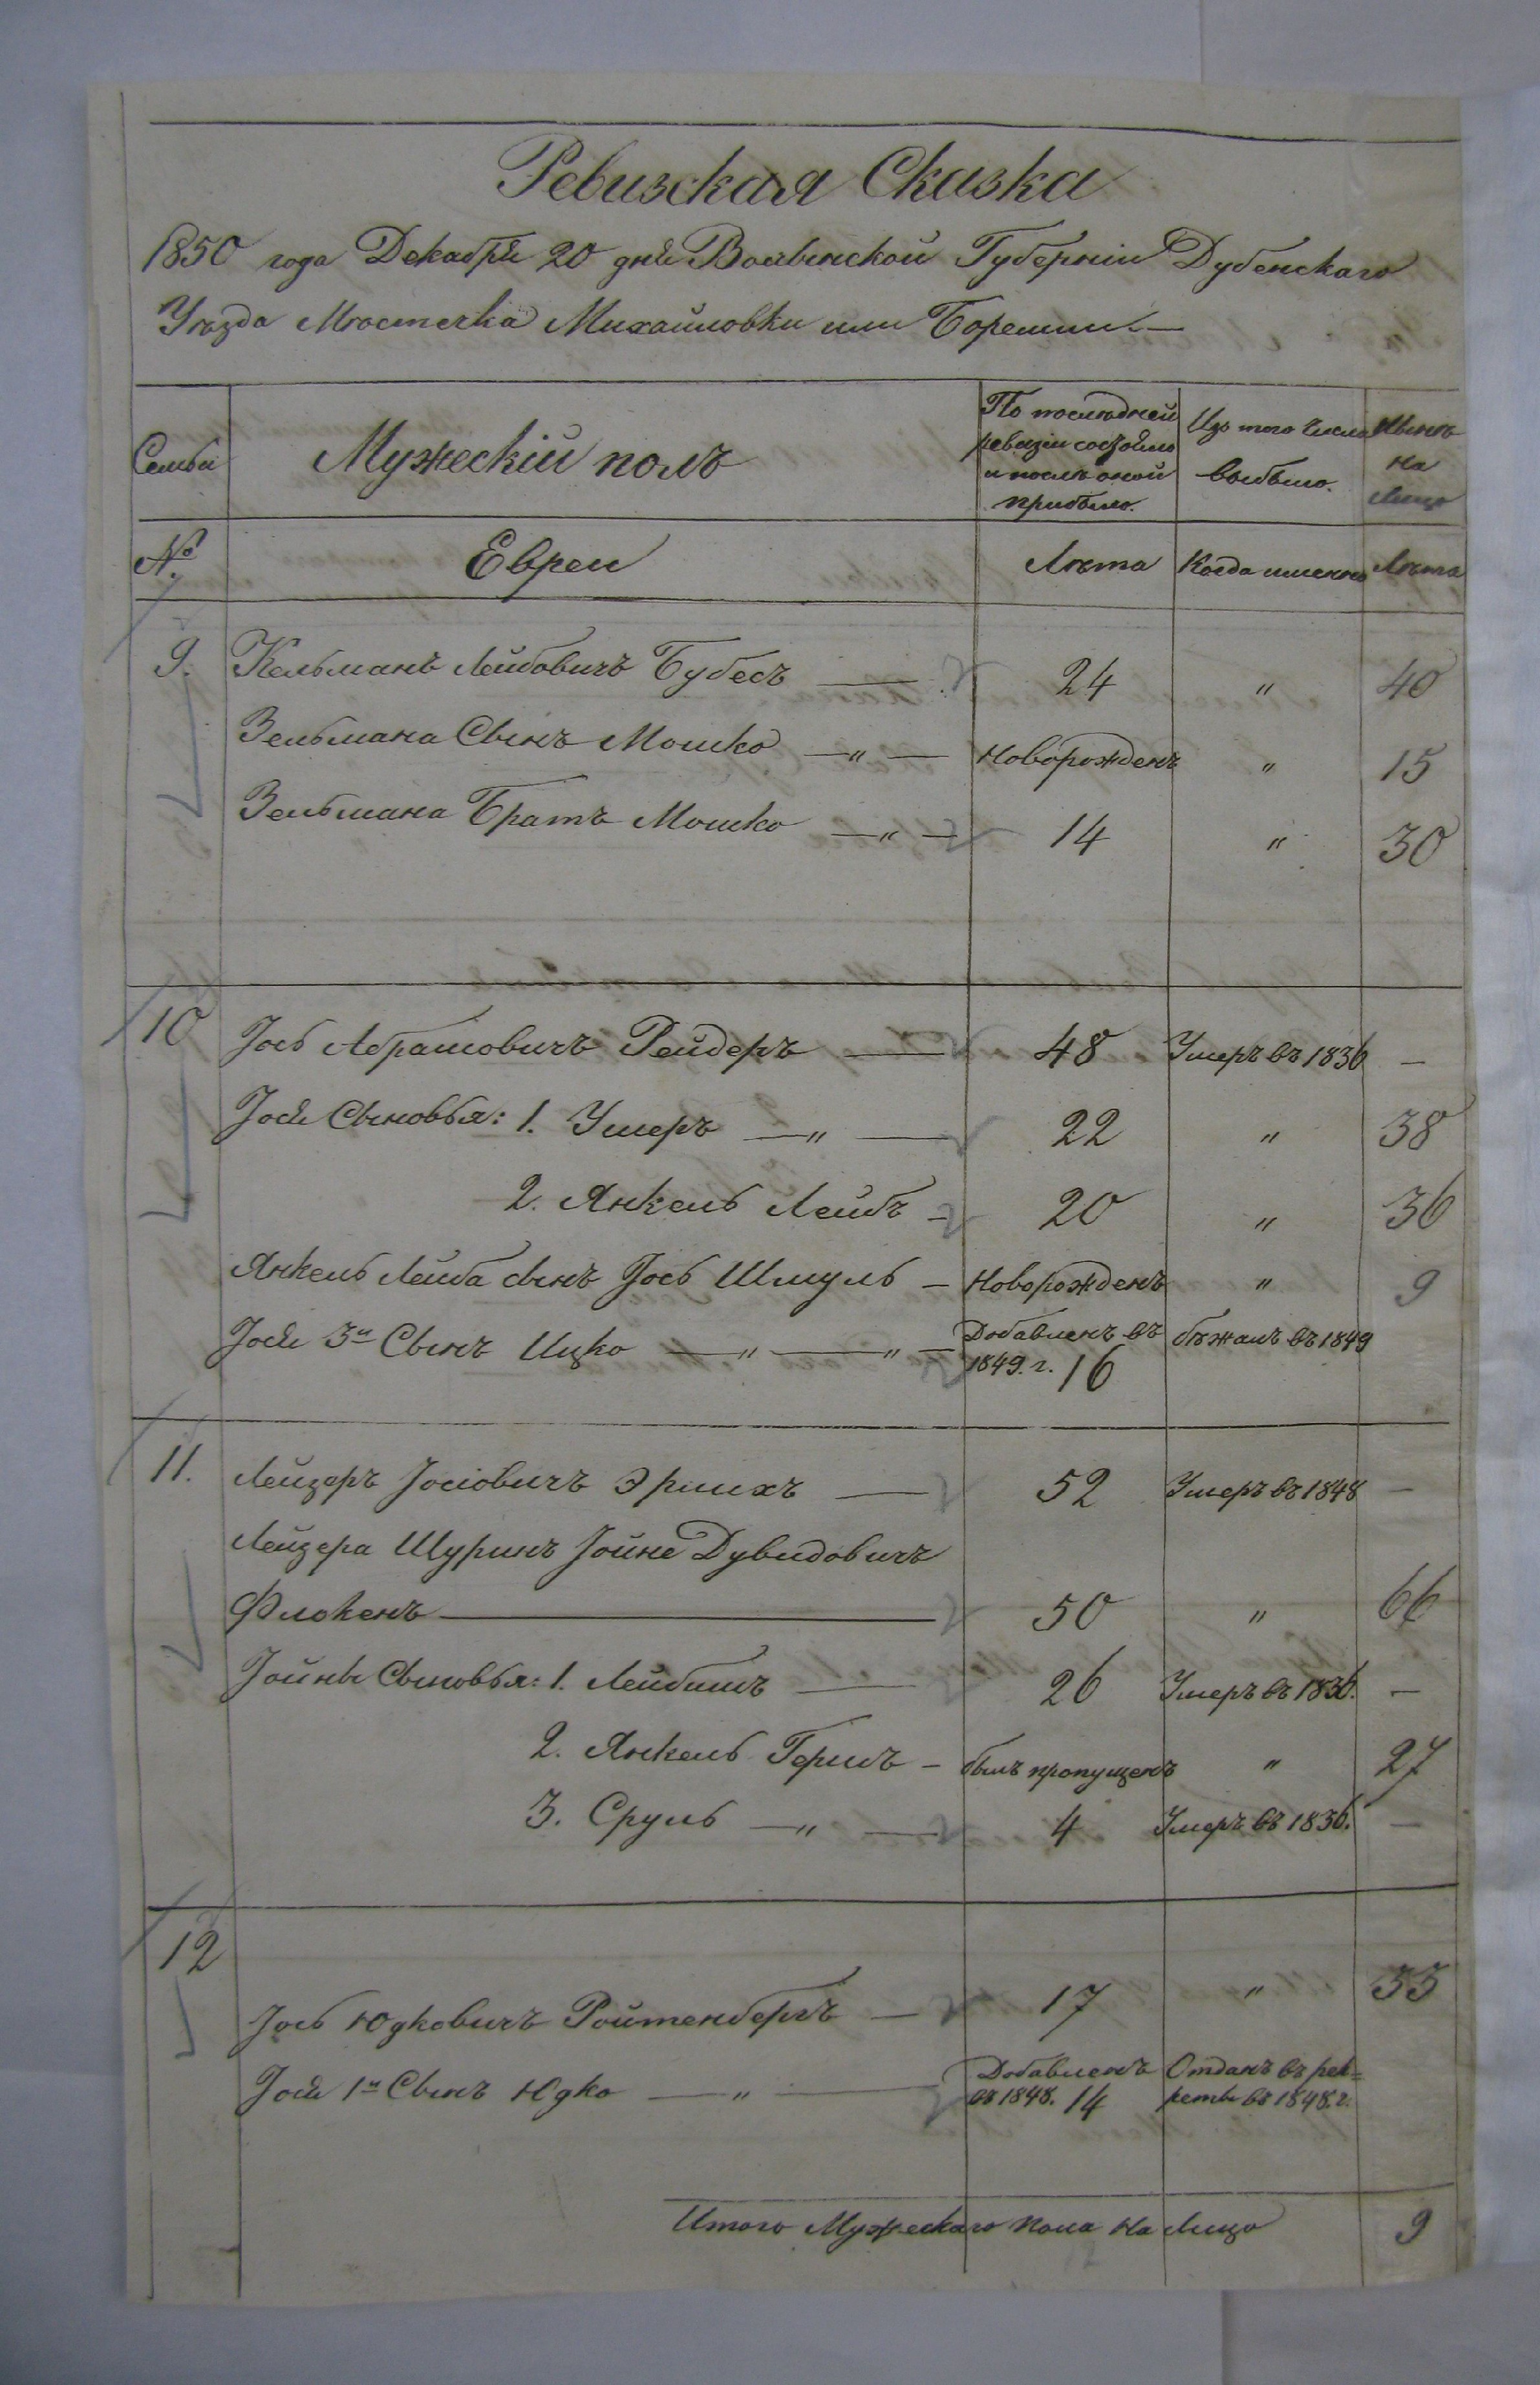 Ревизская Сказка
1850 года Декабря 20 дня Волынской Губерніи Дубенскаго
Уѣзда Мѣстечка Михайловки или Боремли.—
Семьи
Мужескій полъ
По послѣдней ревизіи состояло и послѣ оной прибыло.
Изъ того числа выбыло.
Нынѣ на Лицо
№
Евреи
Лѣта
Когда именно
Лѣта
9. Кельманъ Лейбовичъ Бубесъ — 24 " 40
Зельмана Сынъ Мошко —"— Новорожденъ " 15
Зельмана Братъ Мошко —"— 14 " 30
10 Іось Абрамовичъ Рейдеръ — 48 Умеръ въ 1836 —
Іося Сыновья: 1. Ушеръ —"— 22 " 38
2. Янкель Лейбъ — 20 " 36
Янкель Лейба сынъ Іось Шмуль — Новорожденъ " 9
Іося 3й Сынъ Ицко —"—"— Добавленъ въ 1849. г. 16 бѣжалъ въ 1849
11. Лейзеръ Іосіовичъ Эрлихъ — 52 Умеръ въ 1848 —
Лейзера Шуринъ Іойне Дувидовичъ
Флокенъ — 50 " 66
Іойны Сыновья: 1. Лейбишъ — 26 Умеръ въ 1836. —
2. Янкель Гершъ — былъ пропущенъ " 27
3. Сруль —"— 4 Умеръ въ 1836. —
12
Іось Юдковичъ Ройтенбергъ — 17 " 33
Іося 1й Сынъ Юдко —"— Добавленъ въ 1848. 14 Отданъ въ рек=
реты въ 1848. г.
Итого Мужескаго пола на Лицо 9